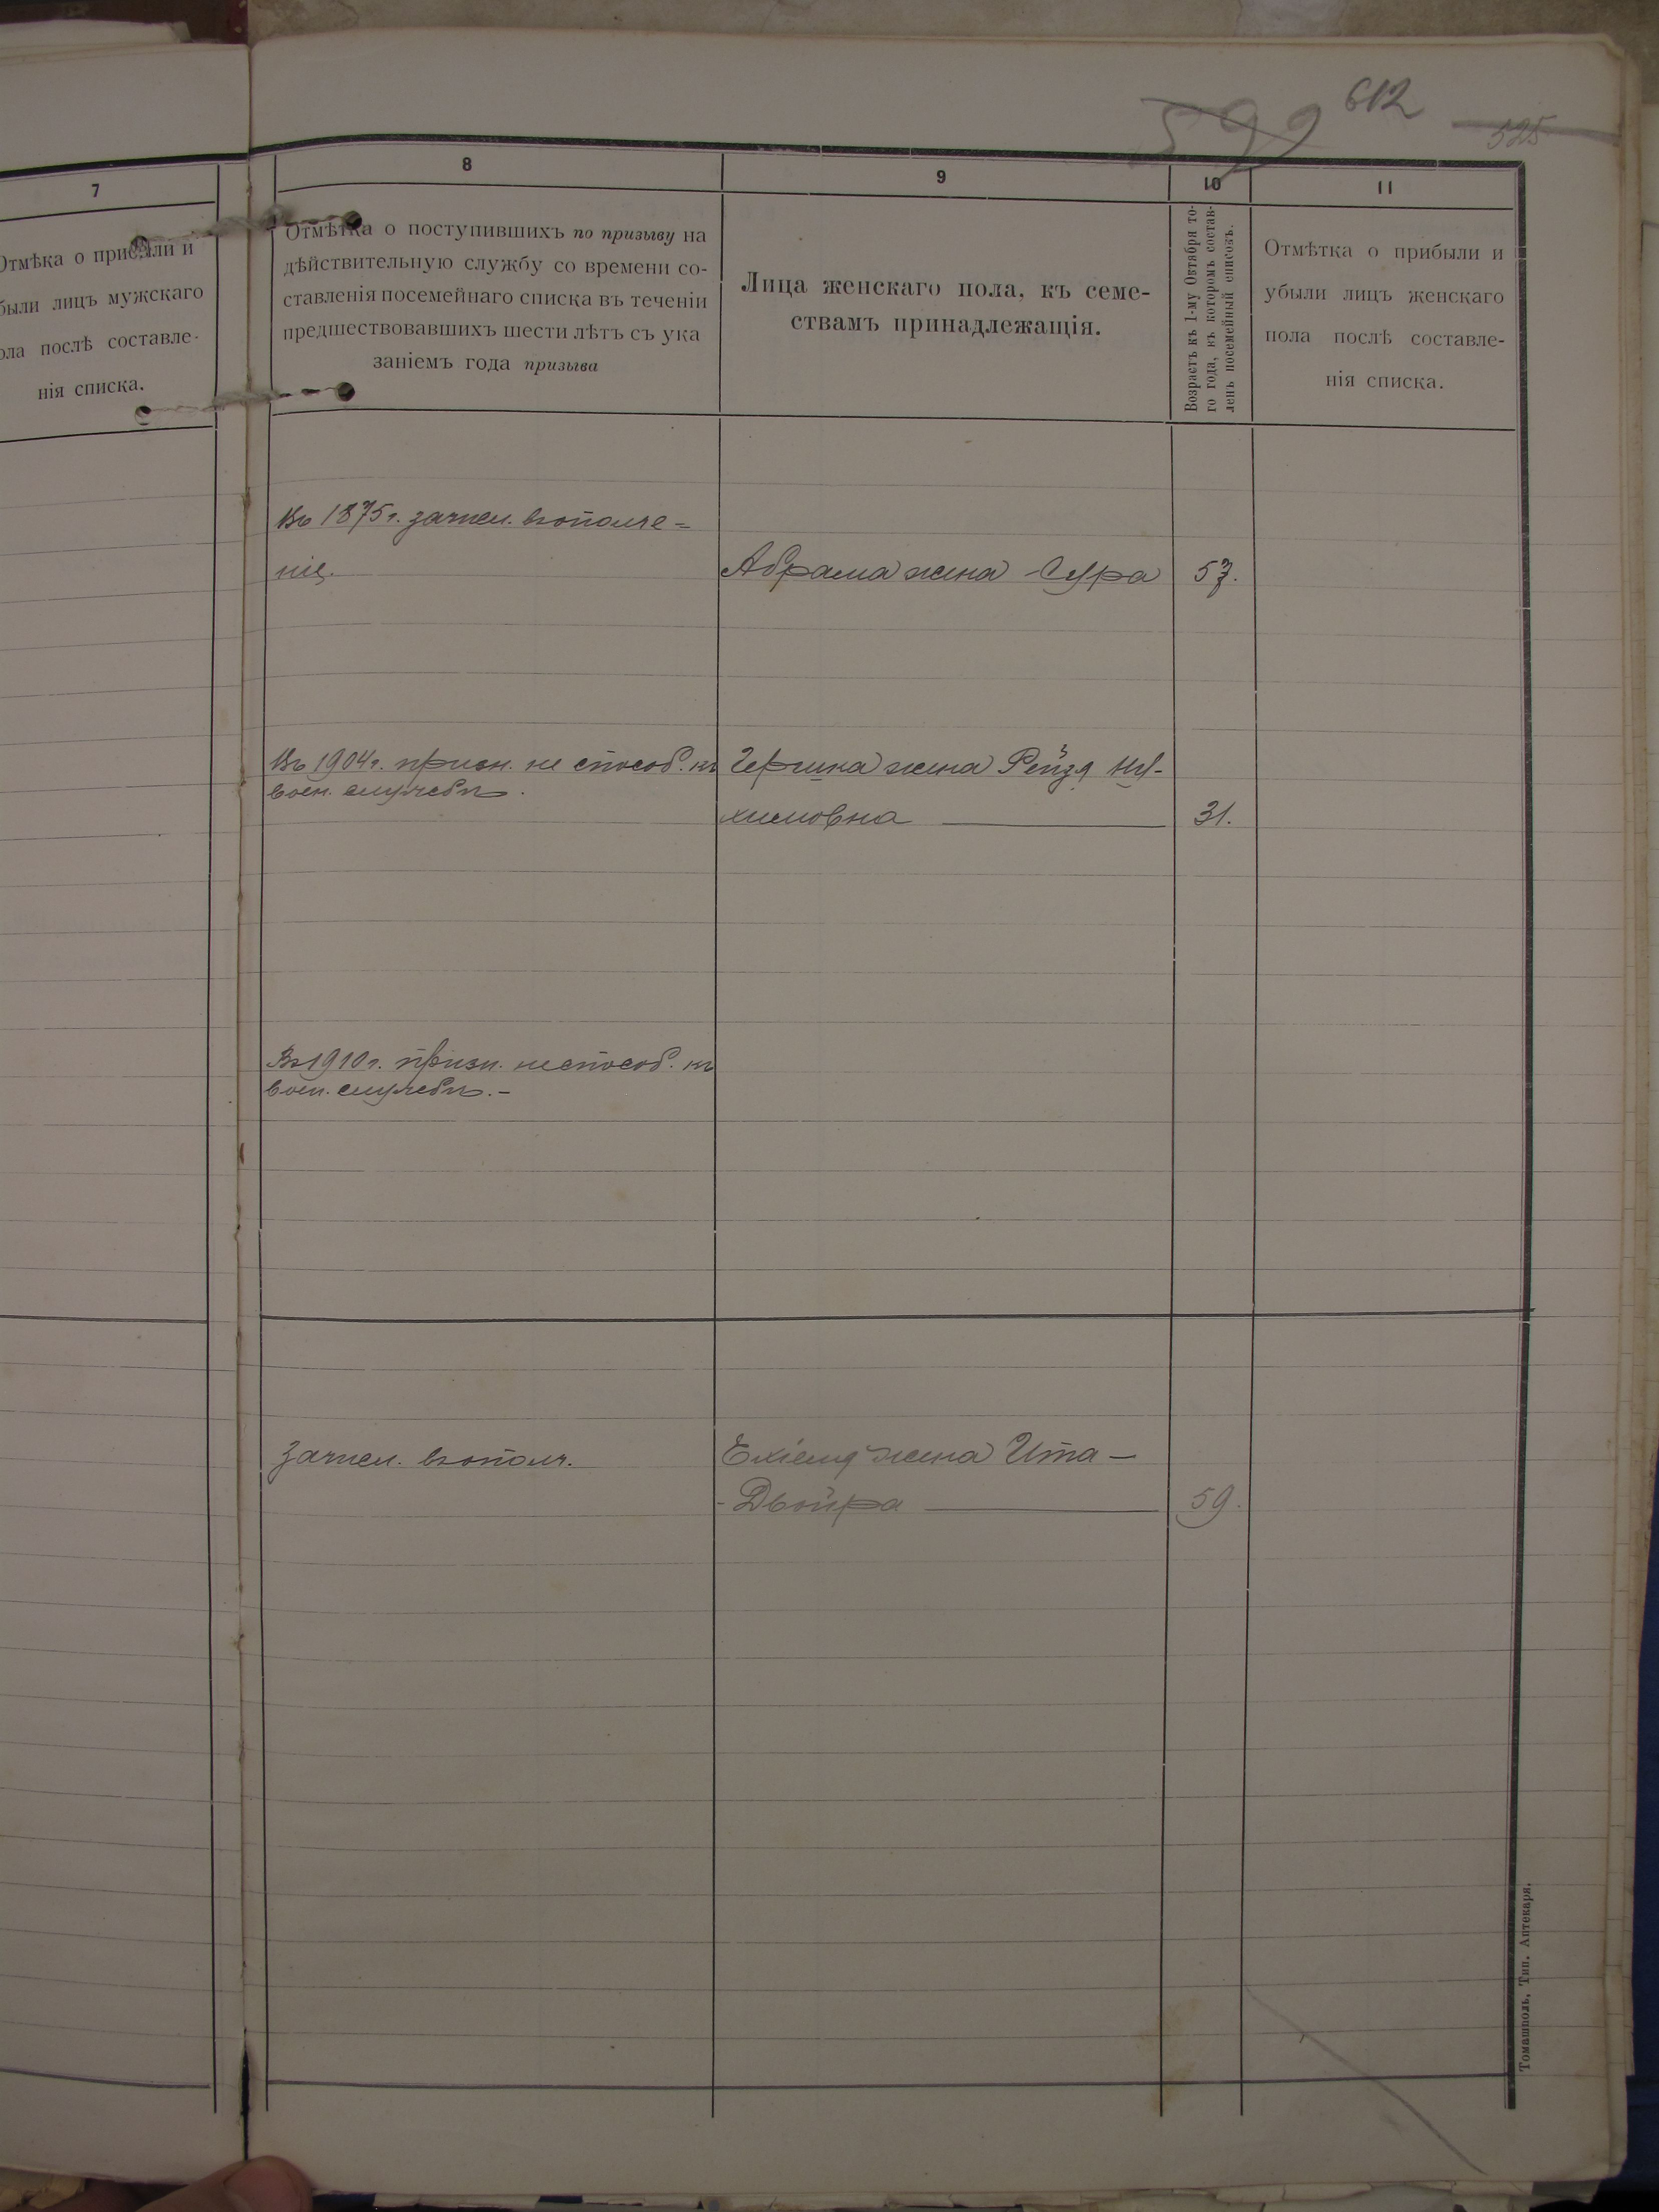 612
599
525
7
Отмѣка о прибыли и
были лицъ мужскаго
ола послѣ составле-
нія списка.
8
Отмѣтка о поступившихъ по призыву на
дѣйствительную службу со времени со-
ставленія посемейнаго списка въ теченіи
предшествовавшихъ шести лѣтъ съ ука
заніемъ года призыва
9
Лица женскаго пола, къ семе-
ствамъ принадлежащія.
10
Возрастъ къ 1-му Октября то-
го года, въ которомъ состав-
ленъ посемейный списокъ.
11
Отмѣтка о прибыли и
убыли лицъ женскаго
пола послѣ составле-
нія списка.
Въ 1875 г. зачисл. вополче-
ніе.
Абрама жена Сура 57.
Въ 1904 г. призн. не способ. къ
воен. службѣ.
Гершка жена Рейзя Ну-
химовна 31.
Въ 1910 г. призн. неспособ. къ
воен. службѣ. -
Зачисл. вополч.
Ехіеля жена Ита -
- Двойра 59.
Томашполь, Тип. Аптекаря.